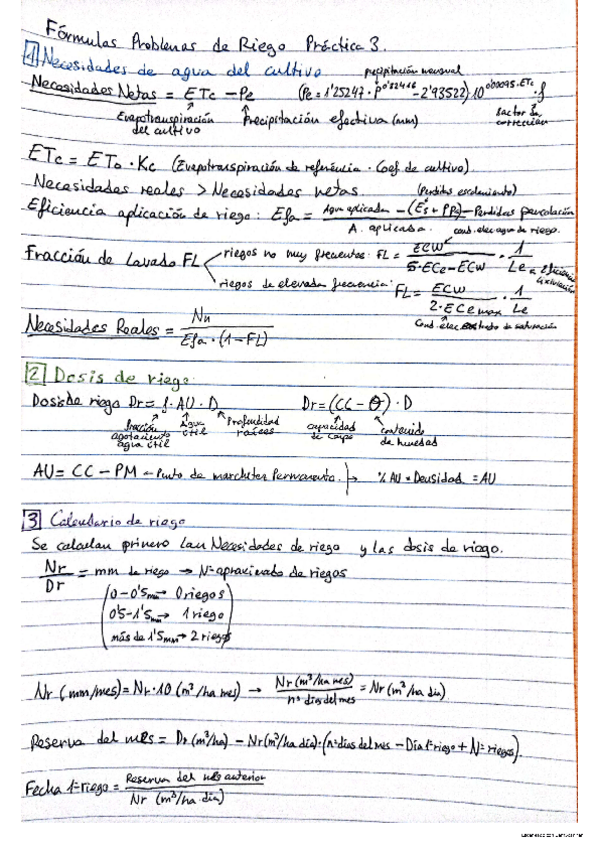 Fórmulas Problemas de Riego Práctica 3.
1 Necesidades de agua del cultivo
precipitación mensual
Necesidades Netas = ETc - Pe (Pe = 1'25247 · P^0'82416 - 2'93522) 10^0'00095·ETc · f
Evapotranspiración del cultivo
Precipitación efectiva (mm)
factor de corrección
ETc = ETo · Kc (Evapotranspiración de referencia · Coef de cultivo)
Necesidades reales > Necesidades netas
(Perdidas escolamiento)
Eficiencia aplicación de riego: Efa = Agua aplicada - (Es + PPs) - Perdidas percolación / A. aplicada
cond. elec agua de riego.
Fracción de lavado FL
riegos no muy frecuentes: FL = ECW / 5·ECe - ECW · 1 / Le
riegos de elevada frecuencia: FL = ECW / 2·ECe max · 1 / Le
Necesidades Reales = Nn / Efa · (1 - FL)
2 Dosis de riego
Dosis de riego Dr = f · AU · D Dr = (CC - θ) · D
fracción agotamiento agua útil
Agua útil
Profundidad raíces
capacidad de campo
contenido de humedad
AU = CC - PM - Punto de marchitez Permanente. % AU * Densidad = AU
3 Calendario de riego
Se calculan primero las Necesidades de riego y las dosis de riego.
Nr / Dr = mm de riego → Nº aproximado de riegos
0 - 0'5mm → 0 riegos
0'5 - 1'5mm → 1 riego
más de 1'5mm → 2 riegos
Nr (mm/mes) = Nr · 10 (m³/ha mes) → Nr (m³/ha mes) / nº dias del mes = Nr (m³/ha dia)
Reserva del mes = Dr (m³/ha) - Nr (m³/ha dia) · (nº dias del mes - Dia 1º riego + Nº riegos).
Fecha 1º riego = Reserva del mes anterior / Nr (m³/ha · dia)